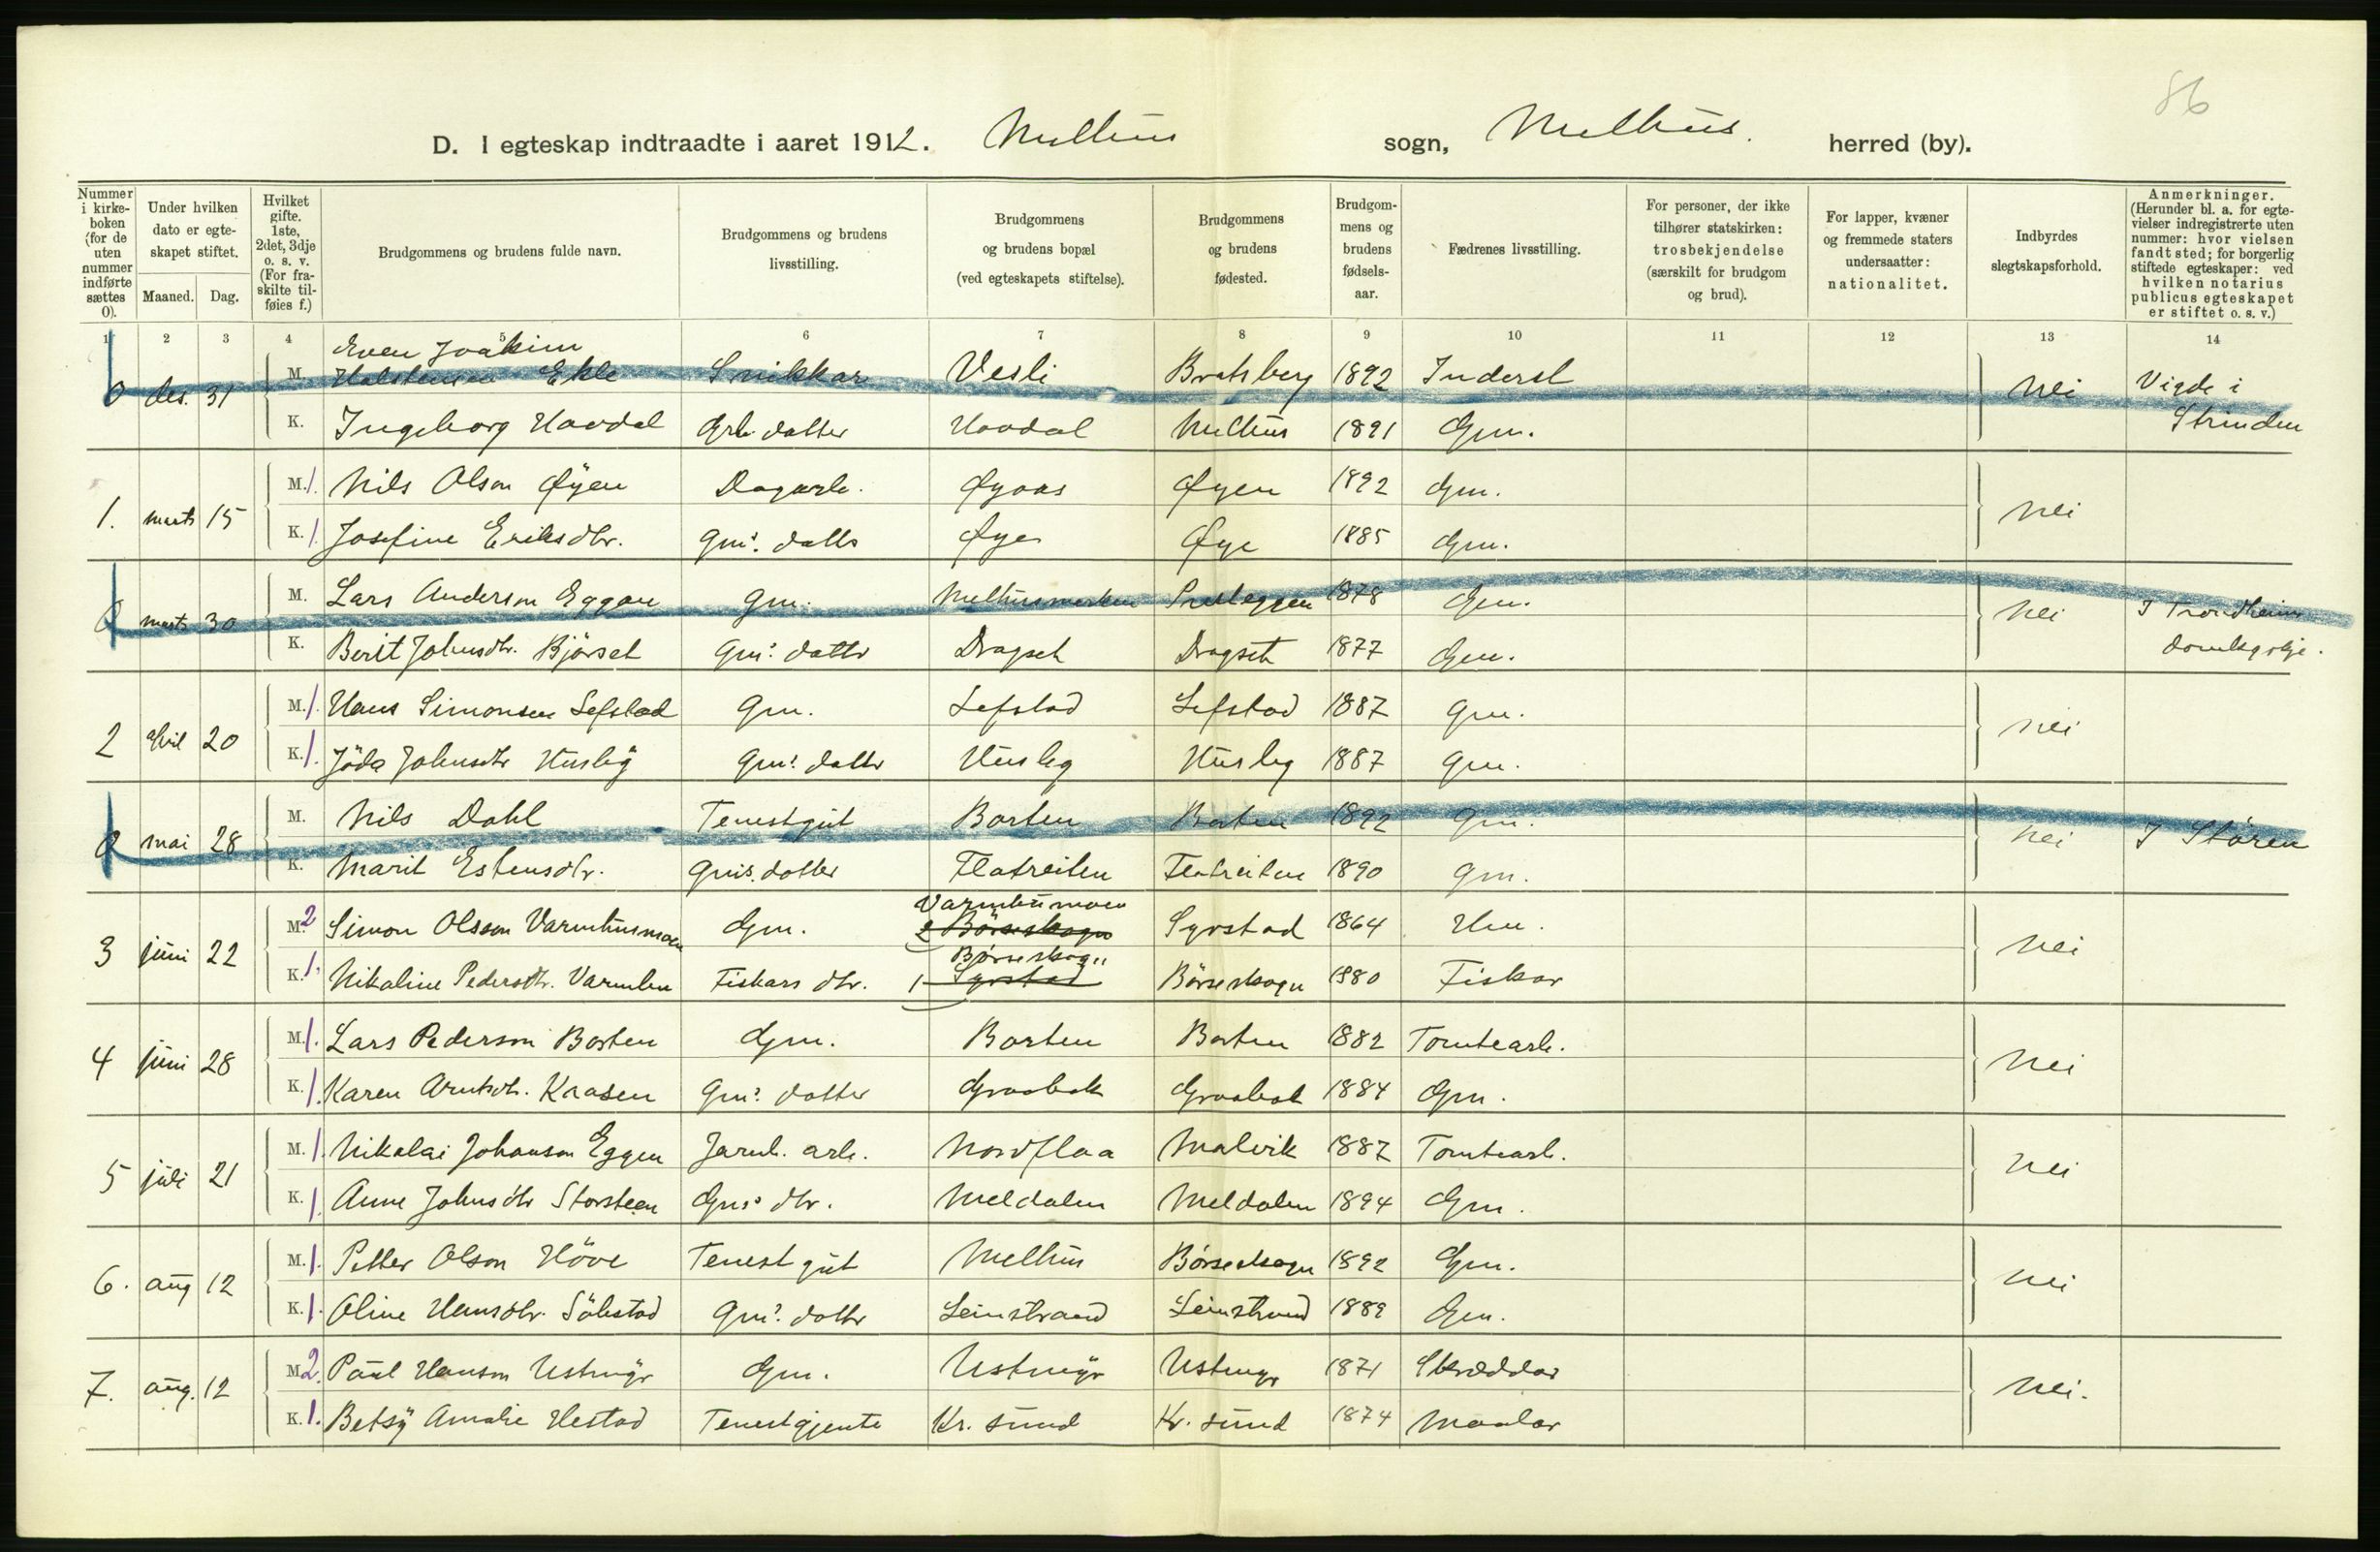 86
D. I egteskap indtraadte i aaret 1912. Melhus sogn, Melhus. herred (by).
Nummer i kirke-boken (for de uten nummer indførte sættes 0).
Under hvilken dato er egte-skapet stiftet.
Maaned. Dag.
Hvilket gifte. 1ste, 2det, 3dje o. s. v. (For fra-skilte til-føies f.)
Brudgommens og brudens fulde navn.
Brudgommens og brudens livsstilling.
Brudgommens og brudens bopæl (ved egteskapets stiftelse).
Brudgommens og brudens fødested.
Brudgom-mens og brudens fødsels-aar.
Fædrenes livsstilling.
For personer, der ikke tilhører statskirken: trosbekjendelse (særskilt for brudgom og brud).
For lapper, kvæner og fremmede staters undersaatter: nationalitet.
Indbyrdes slegtskapsforhold.
Anmerkninger. (Herunder bl. a. for egte-vielser indregistrerte uten nummer: hvor vielsen fandt sted; for borgerlig stiftede egteskaper: ved hvilken notarius publicus egteskapet er stiftet o. s. v.)
1 2 3 4 5 6 7 8 9 10 11 12 13 14
Even Joakim
0 des. 31 M. Halstensen Ekle Snikkar Vesli Bratsberg 1892 Inderst nei Vigde i
K. Ingeborg Hovdal Arb. datter Hovdal Melhus 1891 Gm. Strinden
1. marts 15 M. 1. Nils Olson Øyen Dagarb. Øyaas Øyen 1892 Gm. nei
K. 1. Josefine Eriksdtr. Gm's datter Øye Øye 1885 Gm.
0 marts 30 M. Lars Anderson Eggen Gm. Melhusmarken 1878 Gm. nei I Trondheims
K. Berit Johnsdtr. Bjørset Gm's datter Dragset Dragset 1877 Gm. domkyrkje.
2 april 20 M. 1. Hans Simonsen Lefstad Gm. Lefstad Lefstad 1887 Gm. nei
K. 1. Johnsdtr Husby Gm's datter Husby Husby 1887 Gm.
0 mai 28 M. Nils Dahl Tenestgut Borten Borten 1892 Gm. nei I Støren
K. Marit Estensdtr. Gm's datter Flatreiten Flatreiten 1890 Gm.
Varmbumoen
3 juni 22 M. 2 Simon Olsson Varmbumoen Gm. 2 Børseskogn Syrstad 1864 Hm. nei
Børseskogn
K. 1. Nikoline Pedersdtr. Varmbu Fiskars dtr. 1 Syrstad Børseskogn 1880 Fiskar
4 juni 28 M. 1. Lars Pederson Borten Gm. Borten Borten 1882 Tomtearb. nei
K. 1. Karen Arntsdtr. Kaasen Gm's datter Graabak Graabak 1884 Gm.
5 juli 21 M. 1. Nikolai Johanson Eggen Jarnb. arb. Nordflaa Malvik 1887 Tomtearb. nei
K. 1. Anne Johnsdtr Storsteen Gm's dtr. Meldalen Meldalen 1894 Gm.
6. aug 12 M. 1. Petter Olson Høve Tenestgut Melhus Børseskogn 1892 Gm. nei
K. 1. Oline Hansdtr. Søbstad Gm's datter Leinstrand Leinstrand 1889 Gm.
7. aug. 12 M. 2. Paul Hanson Ustmyr Gm. Ustmyr Ustmyr 1871 Skræddar nei.
K. 1. Betsy Amalie Hestad Tenestgjente Kr. sund Kr. sund 1874 Maalar